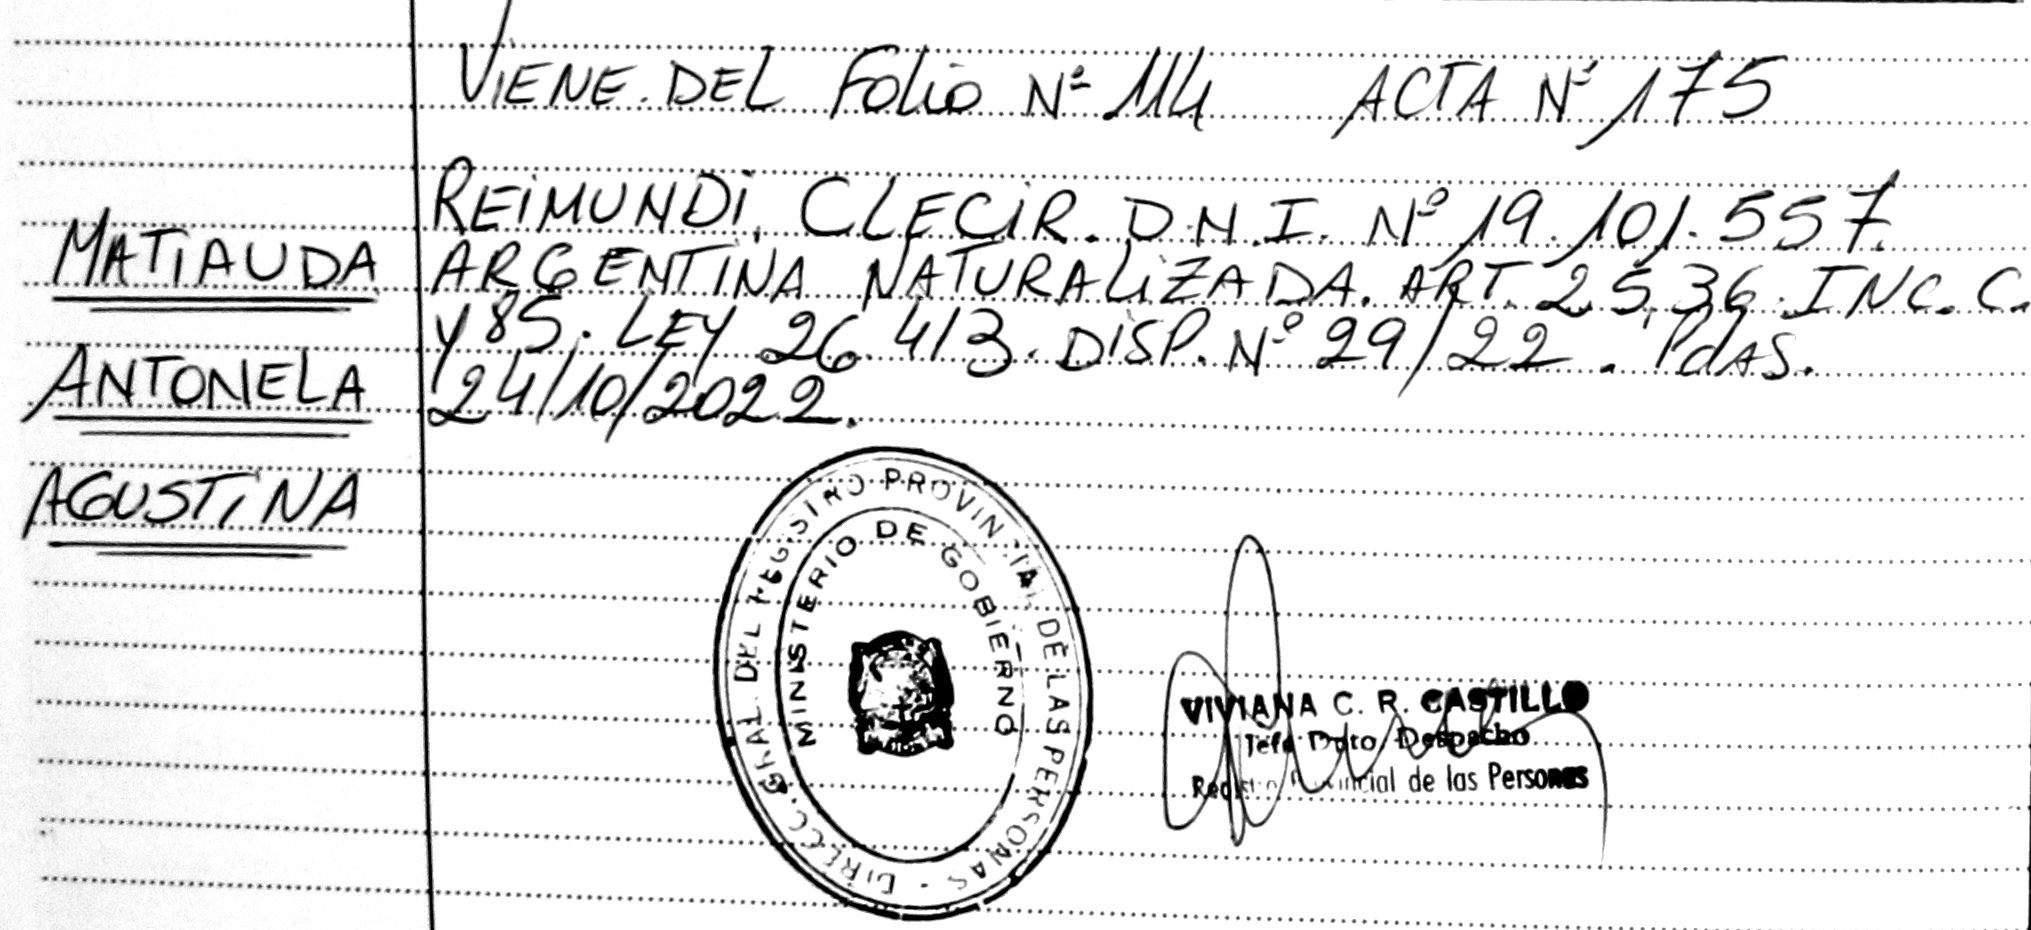 VIENE DEL Folio Nº 114 ACTA Nº 175
MATIAUDA
ANTONELA
AGUSTINA
REIMUNDI, CLECIR. D.N.I. Nº 19.101.557.
ARGENTINA NATURALIZADA. ART. 25, 36. INC. C.
y 85. LEY 26.413. DISP. Nº 29/22. Pdas.
24/10/2022.
DIRECC. GRAL. DEL REGISTRO PROVINCIAL DE LAS PERSONAS -
MINISTERIO DE GOBIERNO
VIVIANA C. R. CASTILLO
Jefa Dpto. Despacho
Registro Provincial de las Personas